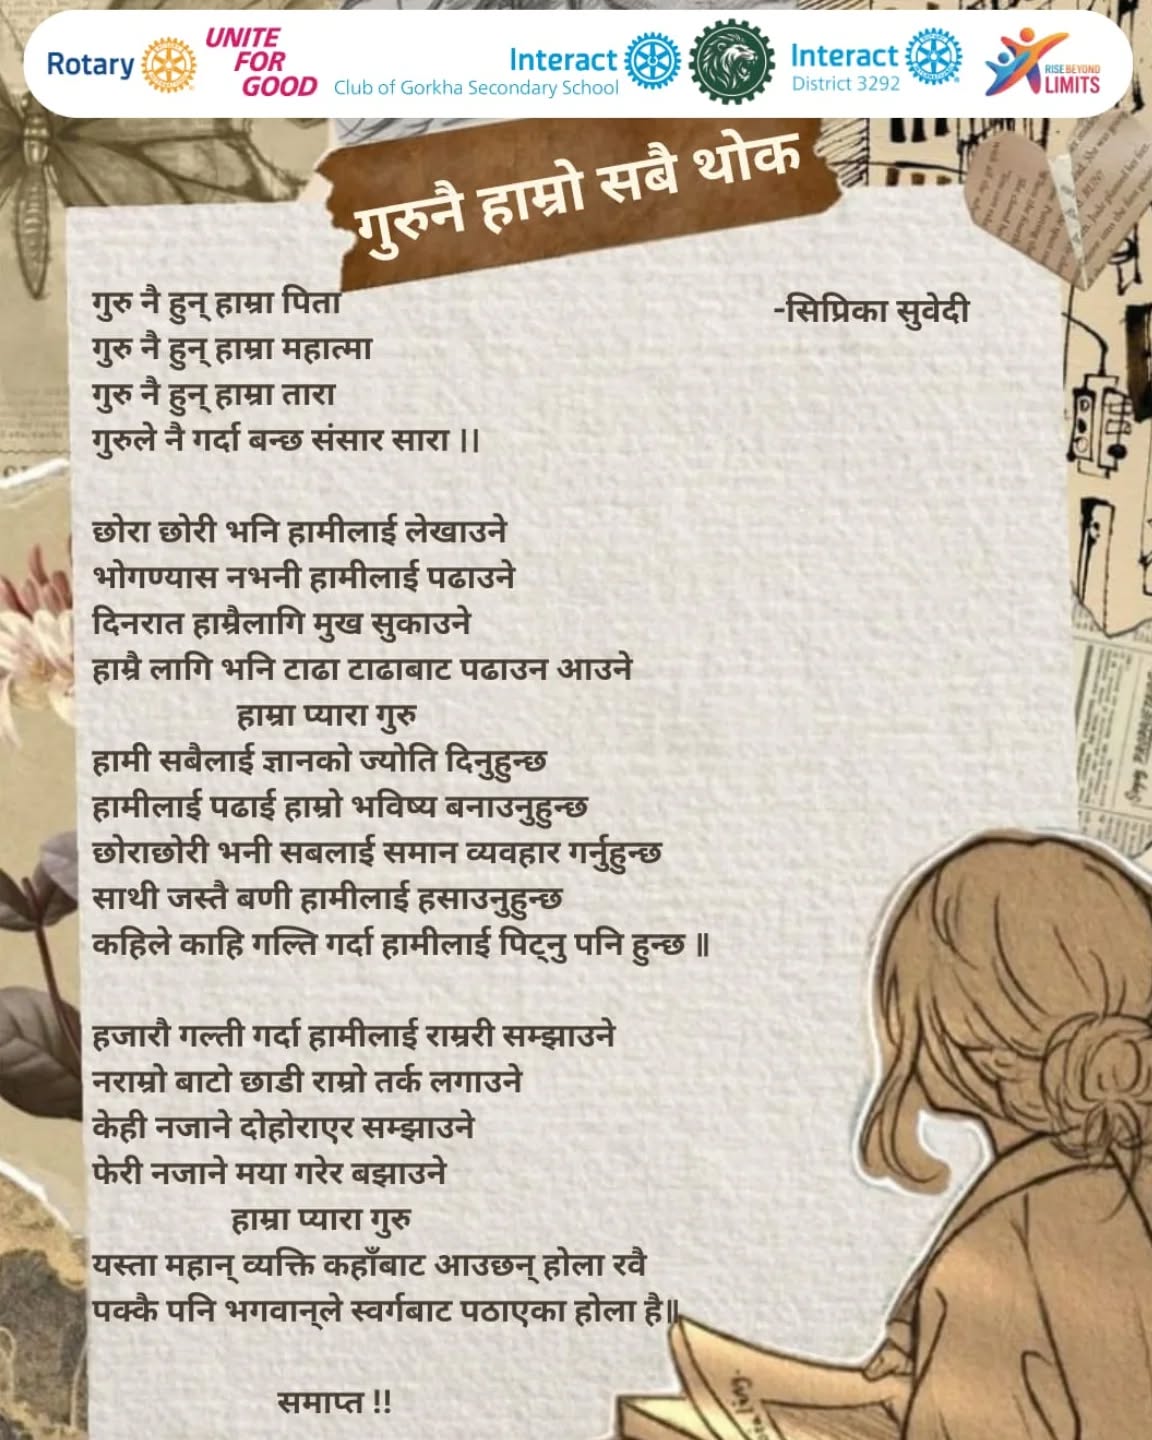 Rotary
UNITE
FOR
GOOD
Interact
Club of Gorkha Secondary School
Interact
District 3292
RISE BEYOND
LIMITS
गुरुनै हाम्रो सबै थोक
-सिप्रिका सुवेदी
गुरु नै हुन् हाम्रा पिता
गुरु नै हुन् हाम्रा महात्मा
गुरु नै हुन् हाम्रा तारा
गुरुले नै गर्दा बन्छ संसार सारा ।।
छोरा छोरी भनि हामीलाई लेखाउने
भोगण्यास नभनी हामीलाई पढाउने
दिनरात हाम्रैलागि मुख सुकाउने
हाम्रै लागि भनि टाढा टाढाबाट पढाउन आउने
हाम्रा प्यारा गुरु
हामी सबैलाई ज्ञानको ज्योति दिनुहुन्छ
हामीलाई पढाई हाम्रो भविष्य बनाउनुहुन्छ
छोराछोरी भनी सबलाई समान व्यवहार गर्नुहुन्छ
साथी जस्तै बणी हामीलाई हसाउनुहुन्छ
कहिले काहि गल्ति गर्दा हामीलाई पिट्नु पनि हुन्छ ॥
हजारौ गल्ती गर्दा हामीलाई राम्ररी सम्झाउने
नराम्रो बाटो छाडी राम्रो तर्क लगाउने
केही नजाने दोहोराएर सम्झाउने
फेरी नजाने मया गरेर बझाउने
हाम्रा प्यारा गुरु
यस्ता महान् व्यक्ति कहाँबाट आउछन् होला रवै
पक्कै पनि भगवान्‌ले स्वर्गबाट पठाएका होला है॥
समाप्त !!